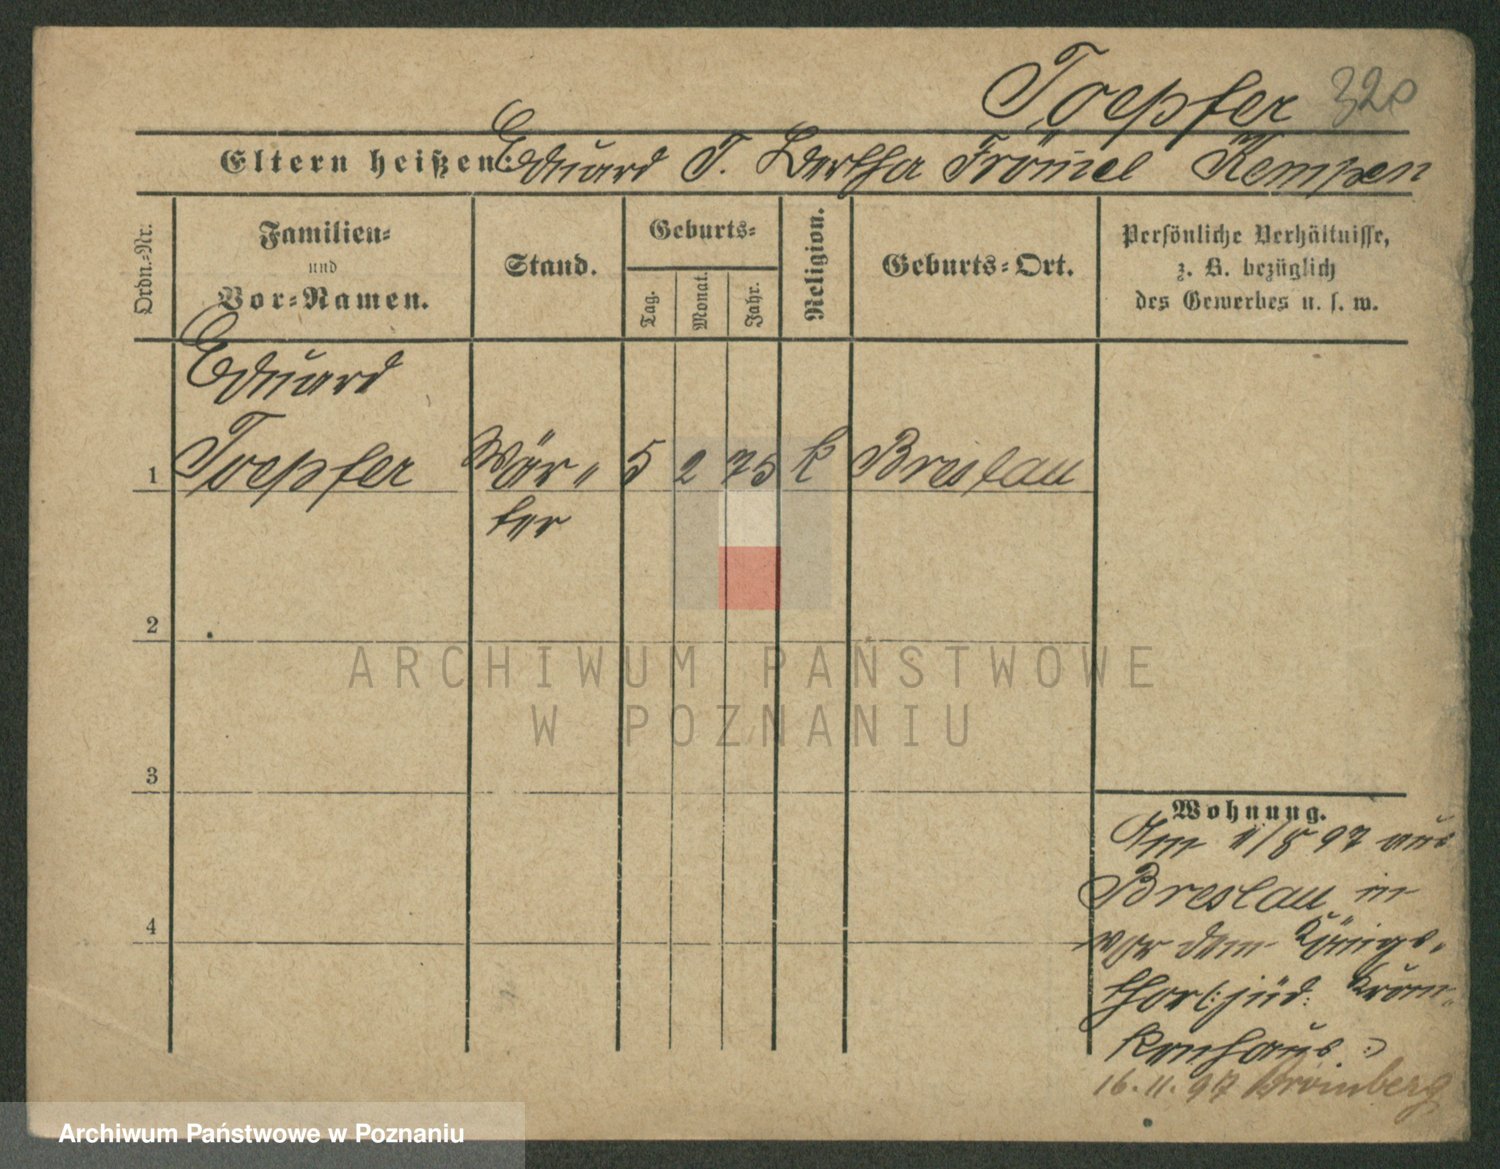 Toepfer 320
Eltern heißen: Eduard T. Bertha Frömel Kempen
Ordn.-Nr.
Familien-
und
Vor-Namen.
Stand.
Geburts-
Tag.
Monat.
Jahr.
Religion.
Geburts-Ort.
Persönliche Verhältnisse,
z. B. bezüglich
des Gewerbes u. s. w.
Eduard
1 Toepfer Wär- 5 2 75 k Breslau
ter
2
3
4
Wohnung.
Am 1/8 97 aus
Breslau in
vor dem Königs-
thor (: jüd: Kran-
kenhaus :)
16.11.97 Bromberg
ARCHIWUM PAŃSTWOWE
W POZNANIU
Archiwum Państwowe w Poznaniu